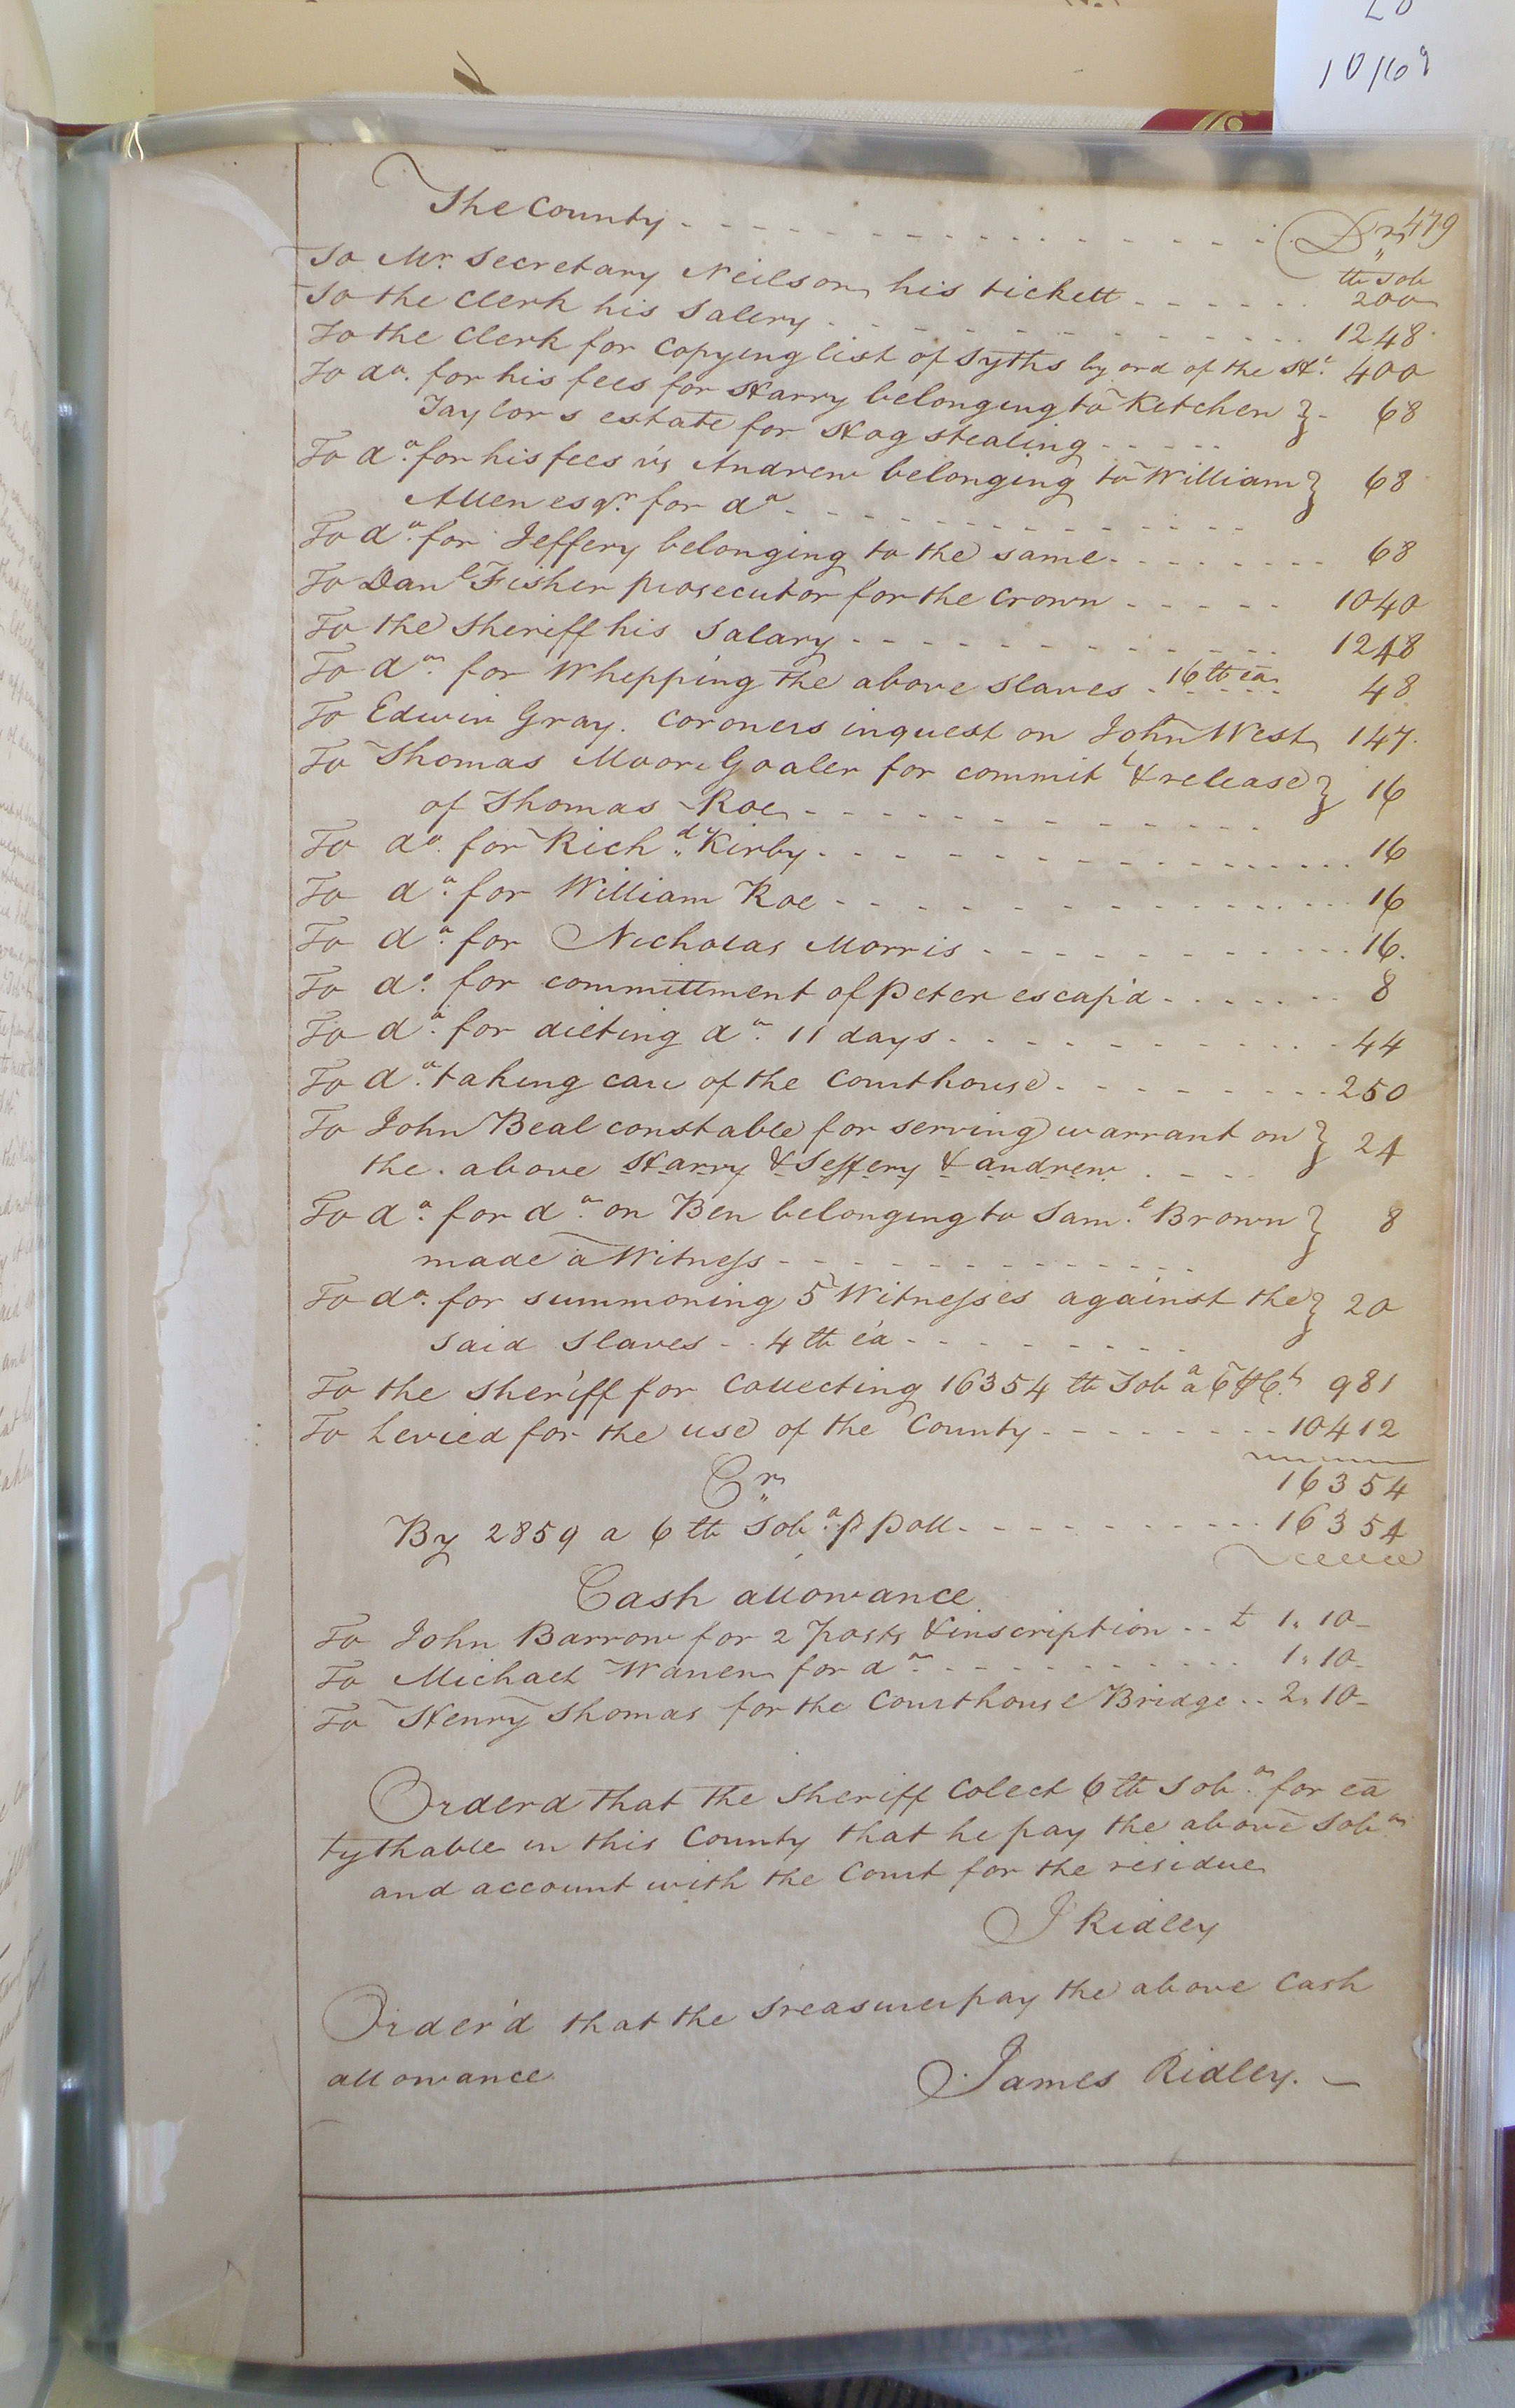 10/69
The County - - - - - - Dr 479
lb Tob
To Mr. Secretary Neilson his tickett - - - - - 200
To the Clerk his Salery - - - - - 1248
To the Clerk for Copying list of Tyths by ord of the Ht. 400
To do. for his fees for Harry belonging to Kitchen } - 68
Taylors estate for Hog stealing - - - - -
To do. for his fees vs Andrew belonging to William } 68
Allen esqr. for do - - - - -
To do. for Jeffery belonging to the same - - - - - 68
To Danl Fisher prosecutor for the Crown - - - - - 1040
To the Sheriff his Salary - - - - - 1248
To do. for Whepping the above slaves - 16 lb ea 48
To Edwin Gray. Coroners inquest on John West 147.
To Thomas Moore Goaler for committ & release } 16
of Thomas Roe - - - - -
To do. for Richd. Kirby - - - - - 16
To do. for William Roe - - - - - 16
To do. for Nicholas Morris - - - - - 16.
To do. for committment of Peter escap'd - - - - - 8
To do. for dieting do. 11 days - - - - - 44
To do. taking care of the Courthouse - - - - - 250
To John Beal constable for serving warrant on } 24
the above Harry & Jeffery & andrew - - - -
To do. for do. on Ben belonging to Saml. Brown } 8
made a Witness - - - - -
To do. for summoning 5 Witnesses against the } 20
said slaves - - 4 lb ea - - - - -
To the Sheriff for Collecting 16354 lb Toba a 6 PCt 981
To Levied for the use of the County - - - - - 10412
Cr 16354
By 2859 a 6 lb Toba. p poll - - - - - 16354
Cash allowance
To John Barrow for 2 posts & inscription - - £ 1. 10 -
To Michael Warren for do. - - - - - 1. 10 -
To Henry Thomas for the Courthouse Bridge - - 2. 10 -
Orderd that the Sheriff Colect 6 lb Toba. for ea
tythable in this County that he pay the above Toba
and account with the Court for the residue
J Ridley
Order'd that the Treasurer pay the above Cash
allowance
James Ridley. -